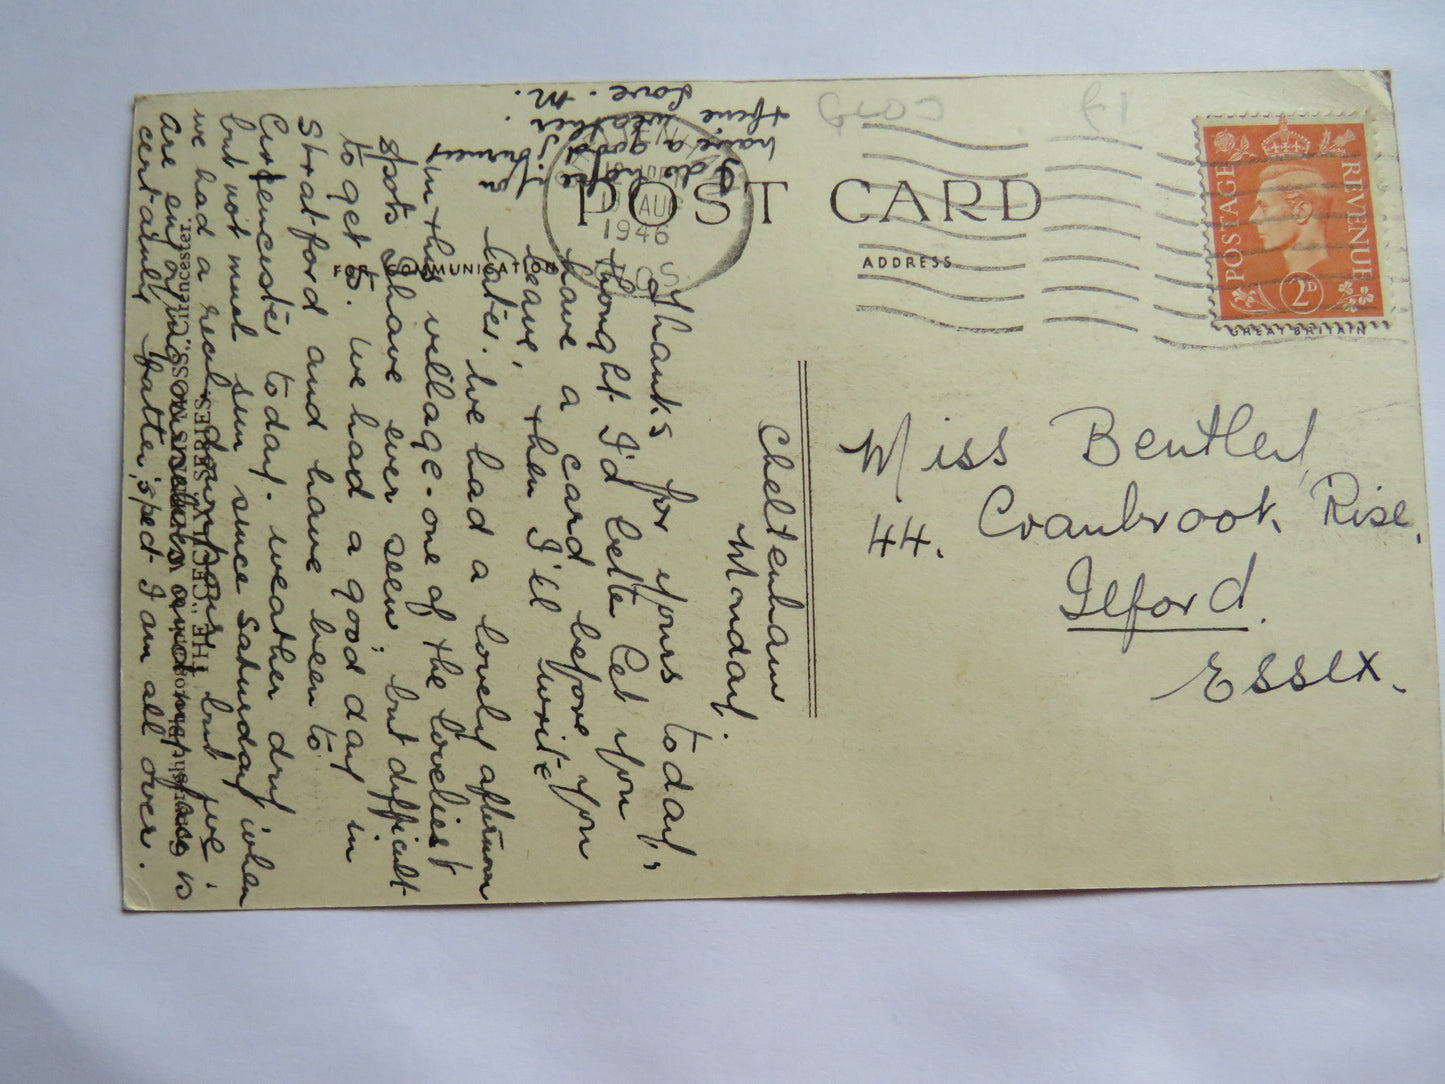 POST CARD
FOR COMMUNICATION
ADDRESS
POSTAGE
REVENUE
2D
GREAT BRITAIN
AUG
1946
GLOS
Miss Bentley,
44. Cranbrook Rise.
Ilford.
Essex.
Cheltenham
Monday.
Thanks for yours today,
thought I'd better let you
have a card before you
leave, then I'll write
later. We had a lovely afternoon
in this village - one of the loveliest
spots I have ever seen, but difficult
to get to. We had a good day in
Stratford and have been to
Cirencester today. Weather dry
but not much sun since Saturday when
we had a real downpour, but we
are enjoying ourselves and my face is
certainly fatter, 'spect I am all over.
I do hope you
have a good journey
fine weather.
Love. M.
THE "CECILY" SERIES